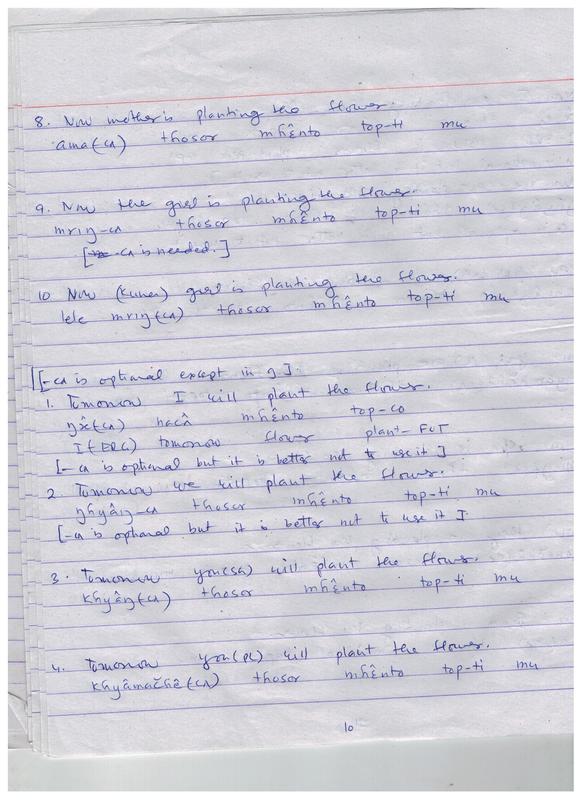 8. Now mother is planting the flower.
ama(-cʌ) thosor mhɛ̂nto top-ti mu
9. Now the girl is planting the flower.
mriŋ-cʌ thosor mhɛ̂nto top-ti mu
[-cʌ is needed.]
10 Now (Kumar) girl is planting the flower.
lele mriŋ(cʌ) thosor mhɛ̂nto top-ti mu
[-cʌ is optional except in 9].
1. Tomorrow I will plant the flower.
ŋʌ̂(cʌ) nacʌ̂ mhɛ̂nto top-co
I(ERG) tomorrow flower plant-FUT
[-cʌ is optional but it is better not to use it]
2. Tomorrow we will plant the flower.
ŋhyâŋ-cʌ thosor mhɛ̂nto top-ti mu
[-cʌ is optional but it is better not to use it]
3. Tomorrow you(SG) will plant the flower.
khyâŋ(cʌ) thosor mhɛ̂nto top-ti mu
4. Tomorrow you(PL) will plant the flower.
khyâmačhê(cʌ) thosor mhɛ̂nto top-ti mu
10